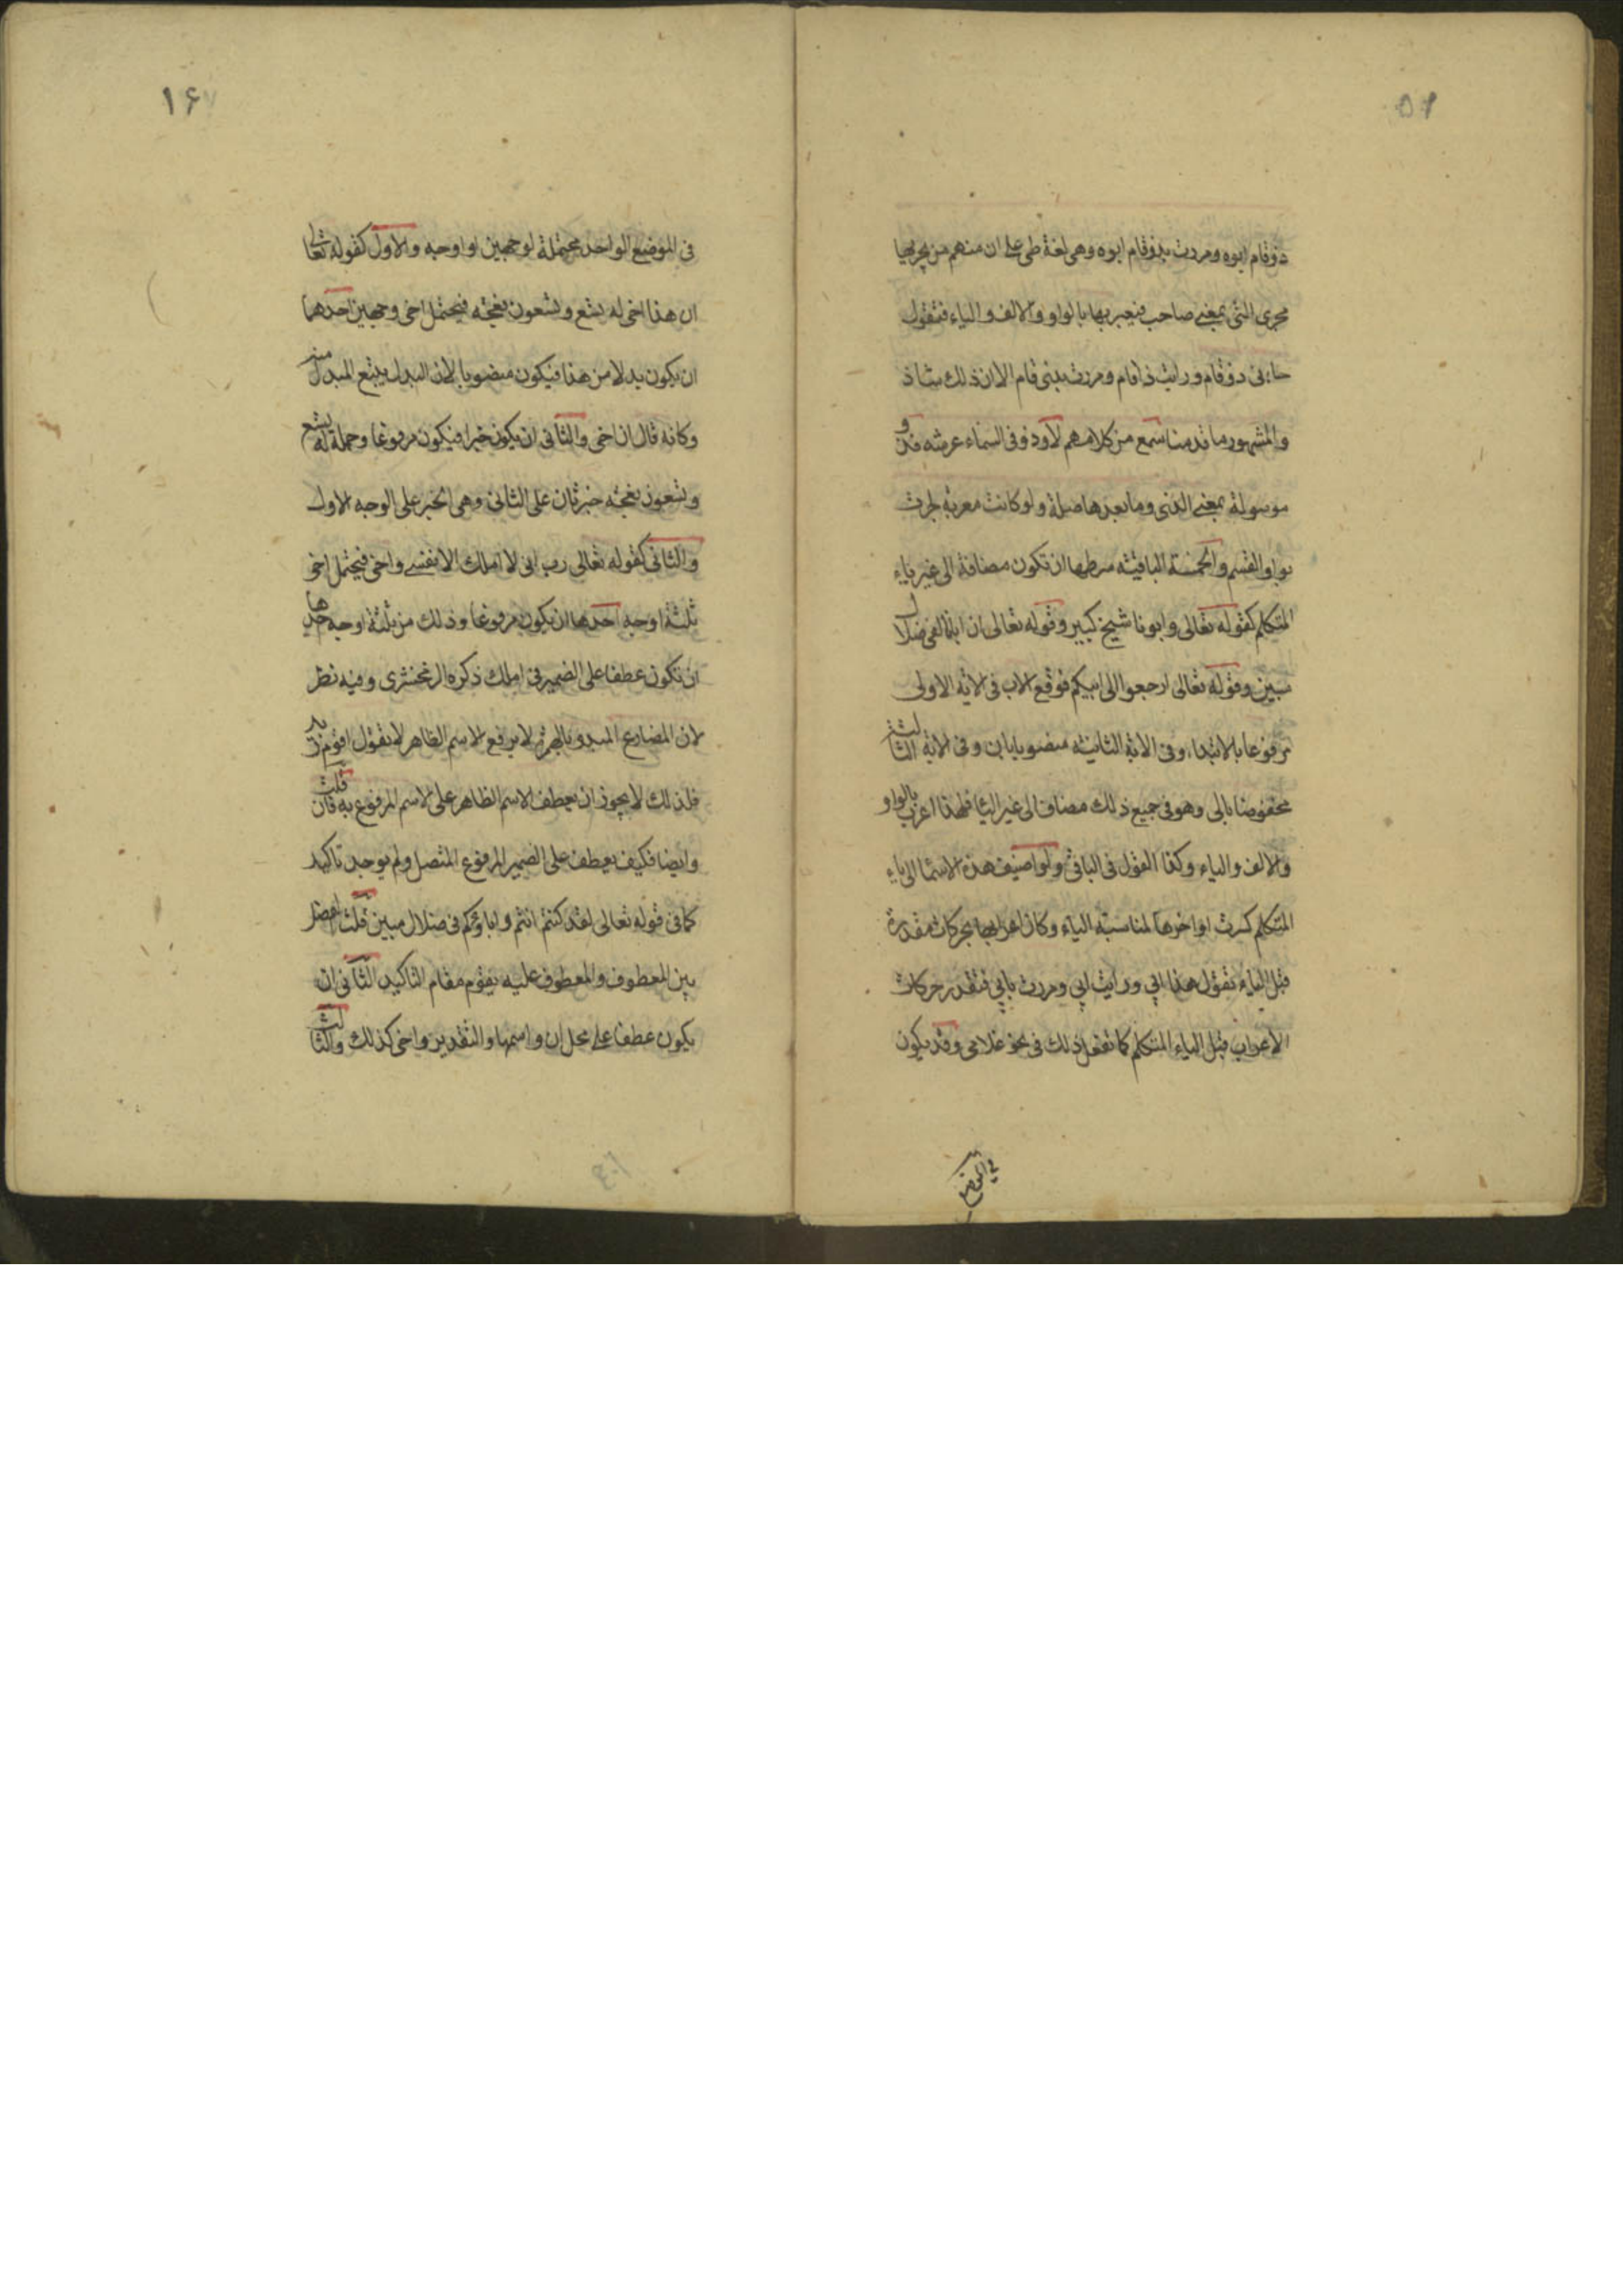 ۵۲
ذو قام ابوه ومررت بذو قام ابوه وهى لغة طى على ان منهم من يجريها
مجرى التى بمعنى صاحب فيعربها بالواو والالف والياء فتقول
جاءنى ذو قام ورايت ذا قام ومررت بذى قام الا ان ذلك شاذ
والمشهور ما قدمنا سمع من كلامهم لا وذو فى السماء عرشه فذو
موصولة بمعنى الذى وما بعدها صلة ولو كانت معربة لجرت
بواو القسم والخمسة الباقيه شرطها ان تكون مضافة الى غير ياء
المتكلم كقوله تعالى وابونا شيخ كبير وقوله تعالى ان ابانا لفى ضلال
مبين وقوله تعالى ارجعوا الى ابيكم فوقع الاب فى الاية الاولى
مرفوعا بالابتداء وفى الاية الثانيه منصوبا بان وفى الاية الثالثة
مخفوضا بالى وهو فى جميع ذلك مضاف الى غير اليا فلهذا اعرب بالواو
والالف والياء وكذا القول فى الباقى ولو اضيف هذه الاسما الى ياء
المتكلم كسرت اواخرها لمناسبة الياء وكان اعرابها بحركات مقدرة
قبل الياء تقول هذا ابي ورايت ابي ومررت بابي فتقدر حركات
الاعراب قبل الياء المتكلم كما تفعل ذلك فى نحو غلامى وقد يكون
في الموضع
۱۶۷
فى الموضع الواحد محتملة لوجهين او اوجه والاول كقوله تعالى
ان هذا اخى له تسع وتسعون نعجة فيحتمل اخى وجهين احدهما
ان يكون بدلا من هذا فيكون منصوبا لان البدل يتبع المبدل منه
وكانه قال ان اخى والثانى ان يكون خبرا فيكون مرفوعا وجملة له تسع
وتسعون نعجة خبر ثان على الثانى وهى الخبر على الوجه الاول
والثانى كقوله تعالى رب انى لا املك الا نفسى واخى فيحتمل اخى
ثلثة اوجه احدها ان يكون مرفوعا وذلك من ثلثة اوجه احدها
ان تكون عطفا على الضمير فى املك ذكره الزمخشرى وفيه نظر
لان المضارع المبدو بالهمزة لا يرفع الاسم الظاهر لا تقول اقوم زيد
فلذلك لا يجوز ان يعطف الاسم الظاهر على الاسم المرفوع به فان قلت
وايضا فكيف يعطف على الضمير المرفوع المتصل ولم يوجد تاكيد
كما فى قوله تعالى لقد كنتم انتم واباؤكم فى ضلال مبين قلت الفصل
بين المعطوف والمعطوف عليه يقوم مقام التاكيد الثانى ان
يكون عطفا على محل ان واسمها والتقدير واخى كذلك والثالث